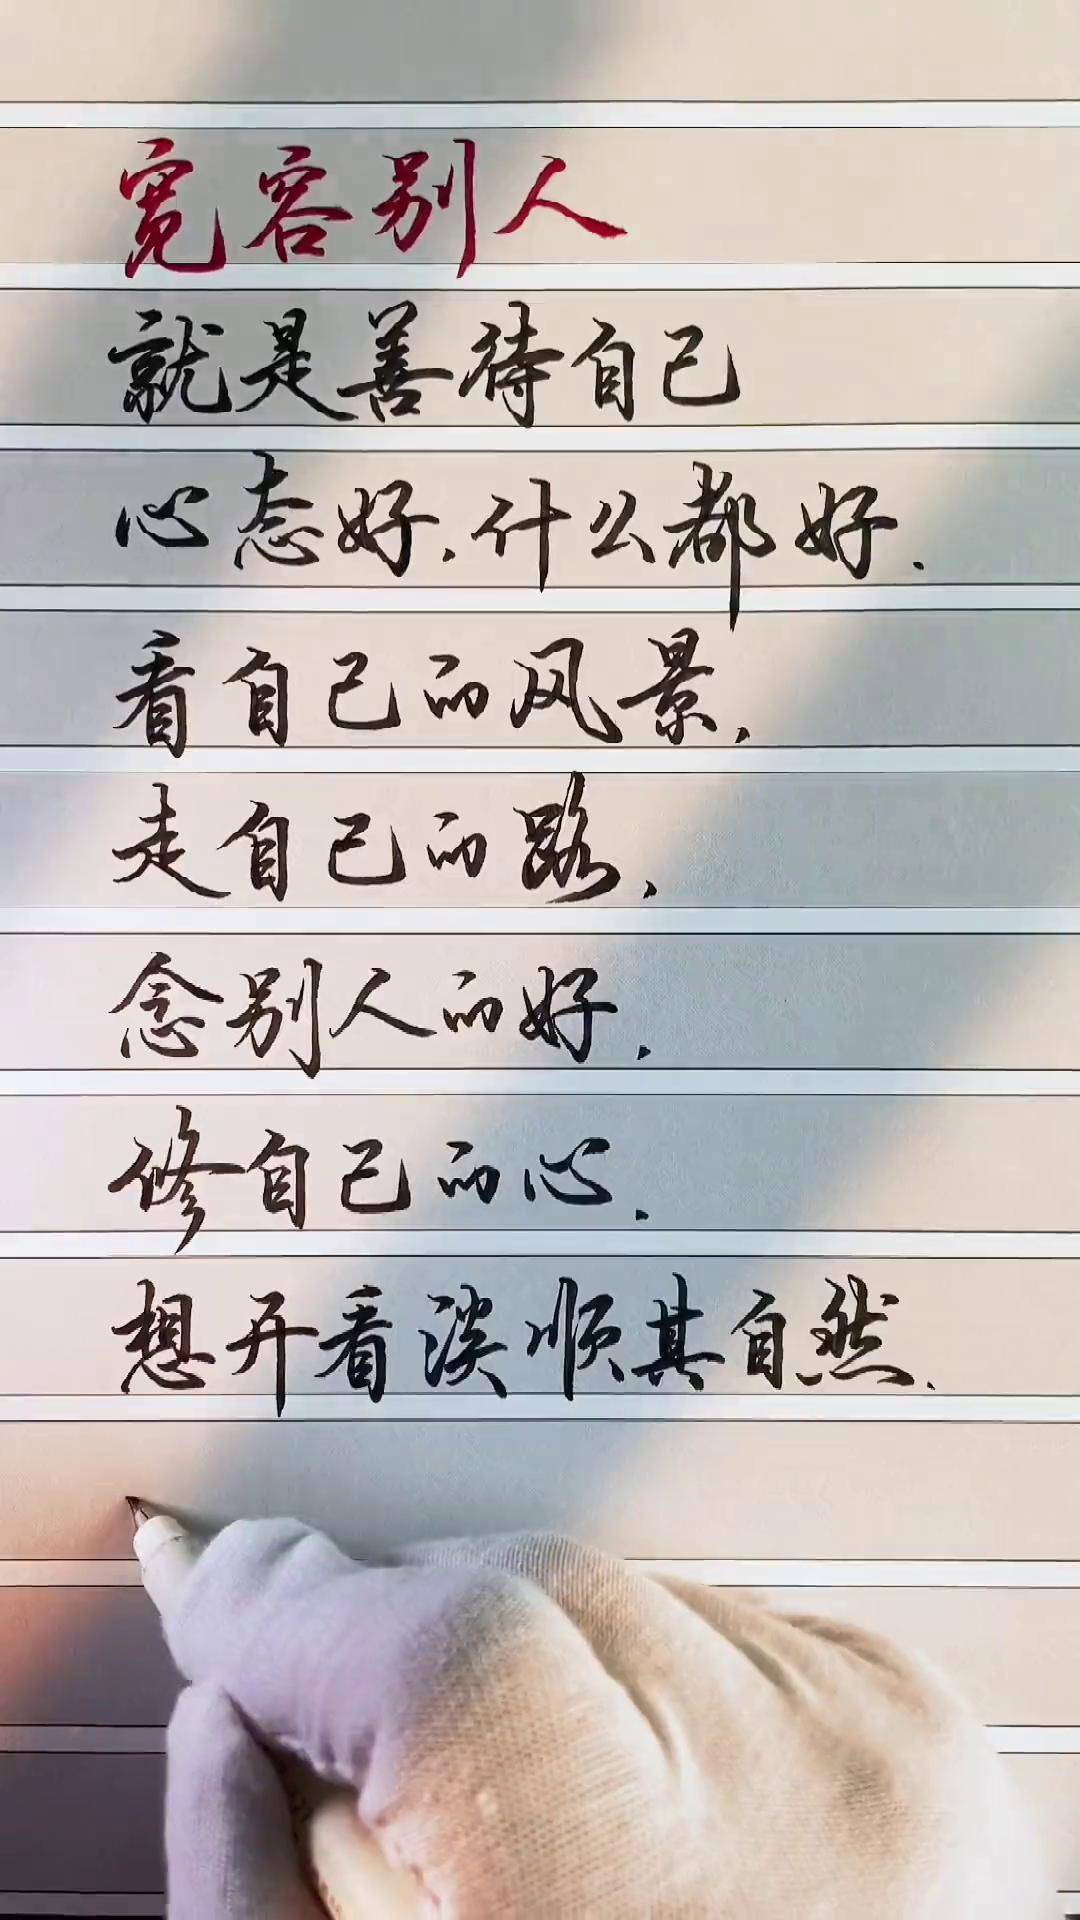 宽容别人
就是善待自己
心态好,什么都好.
看自己的风景,
走自己的路,
念别人的好,
修自己的心.
想开看淡顺其自然.